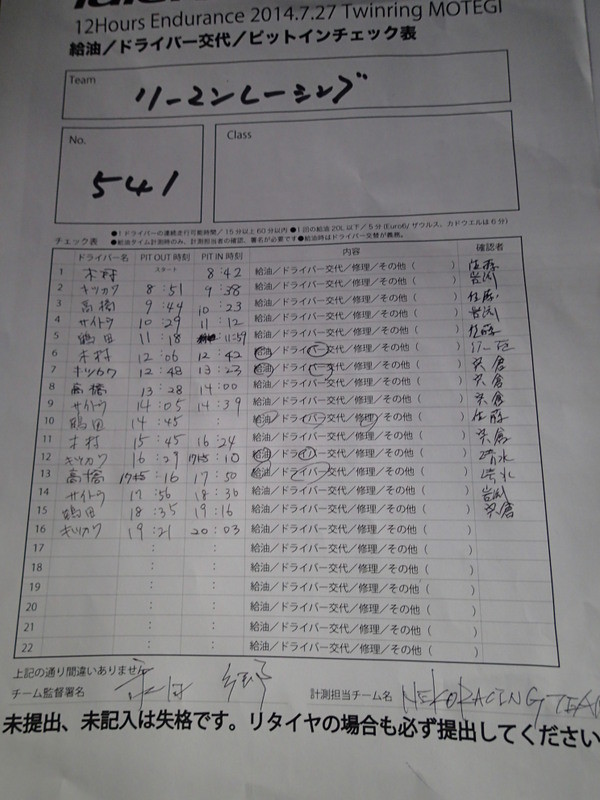 12Hours Endurance 2014.7.27 Twinring MOTEGI
給油／ドライバー交代／ピットインチェック表
Team
リーマンレーシング
No.
Class
541
●1ドライバーの連続走行可能時間／15分以上60分以内 ●1回の給油20L以下／5分 (Euro6/ ザウルス、カドウエルは6分)
チェック表 ●給油タイム計測時のみ、計測担当者の確認、署名が必要です ●給油時はドライバー交替が義務。
ドライバー名 PIT OUT 時刻 PIT IN 時刻 内容 確認者
1 木村 スタート 8:42 給油／ドライバー交代／修理／その他 ( ) 佐藤
2 キツカワ 8:51 9:38 給油／ドライバー交代／修理／その他 ( )
3 高橋 9:44 10:23 給油／ドライバー交代／修理／その他 ( ) 佐藤
4 サイトウ 10:29 11:12 給油／ドライバー交代／修理／その他 ( )
5 鶴田 11:18 11:59 給油／ドライバー交代／修理／その他 ( ) 佐藤
6 木村 12:06 12:42 給油／ドライバー交代／修理／その他 ( )
7 キツカワ 12:48 13:23 給油／ドライバー交代／修理／その他 ( ) 宍倉
8 高橋 13:28 14:00 給油／ドライバー交代／修理／その他 ( ) 宍倉
9 サイトウ 14:05 14:39 給油／ドライバー交代／修理／その他 ( ) 宍倉
10 鶴田 14:45 : 給油／ドライバー交代／修理／その他 ( ) 佐藤
11 木村 15:45 16:24 給油／ドライバー交代／修理／その他 ( ) 宍倉
12 キツカワ 16:29 17:10 給油／ドライバー交代／修理／その他 ( ) 清水
13 高橋 17:16 17:50 給油／ドライバー交代／修理／その他 ( ) 清水
14 サイトウ 17:56 18:30 給油／ドライバー交代／修理／その他 ( )
15 鶴田 18:35 19:16 給油／ドライバー交代／修理／その他 ( ) 宍倉
16 キツカワ 19:21 20:03 給油／ドライバー交代／修理／その他 ( )
17 : : 給油／ドライバー交代／修理／その他 ( )
18 : : 給油／ドライバー交代／修理／その他 ( )
19 : : 給油／ドライバー交代／修理／その他 ( )
20 : : 給油／ドライバー交代／修理／その他 ( )
21 : : 給油／ドライバー交代／修理／その他 ( )
22 : : 給油／ドライバー交代／修理／その他 ( )
上記の通り間違いありません
チーム監督署名 計測担当チーム名 NEKO RACING TEAM
未提出、未記入は失格です。リタイヤの場合も必ず提出してください